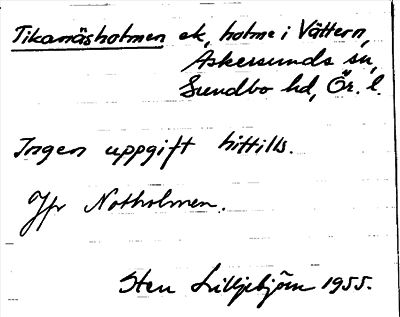 Tikanäsholmen ek, holme i Vättern,
Askersunds sn,
Sundbo hd, Ör. l.
Ingen uppgift hittills.
Jfr Notholmen.
Sten Lilljebjörn 1955.